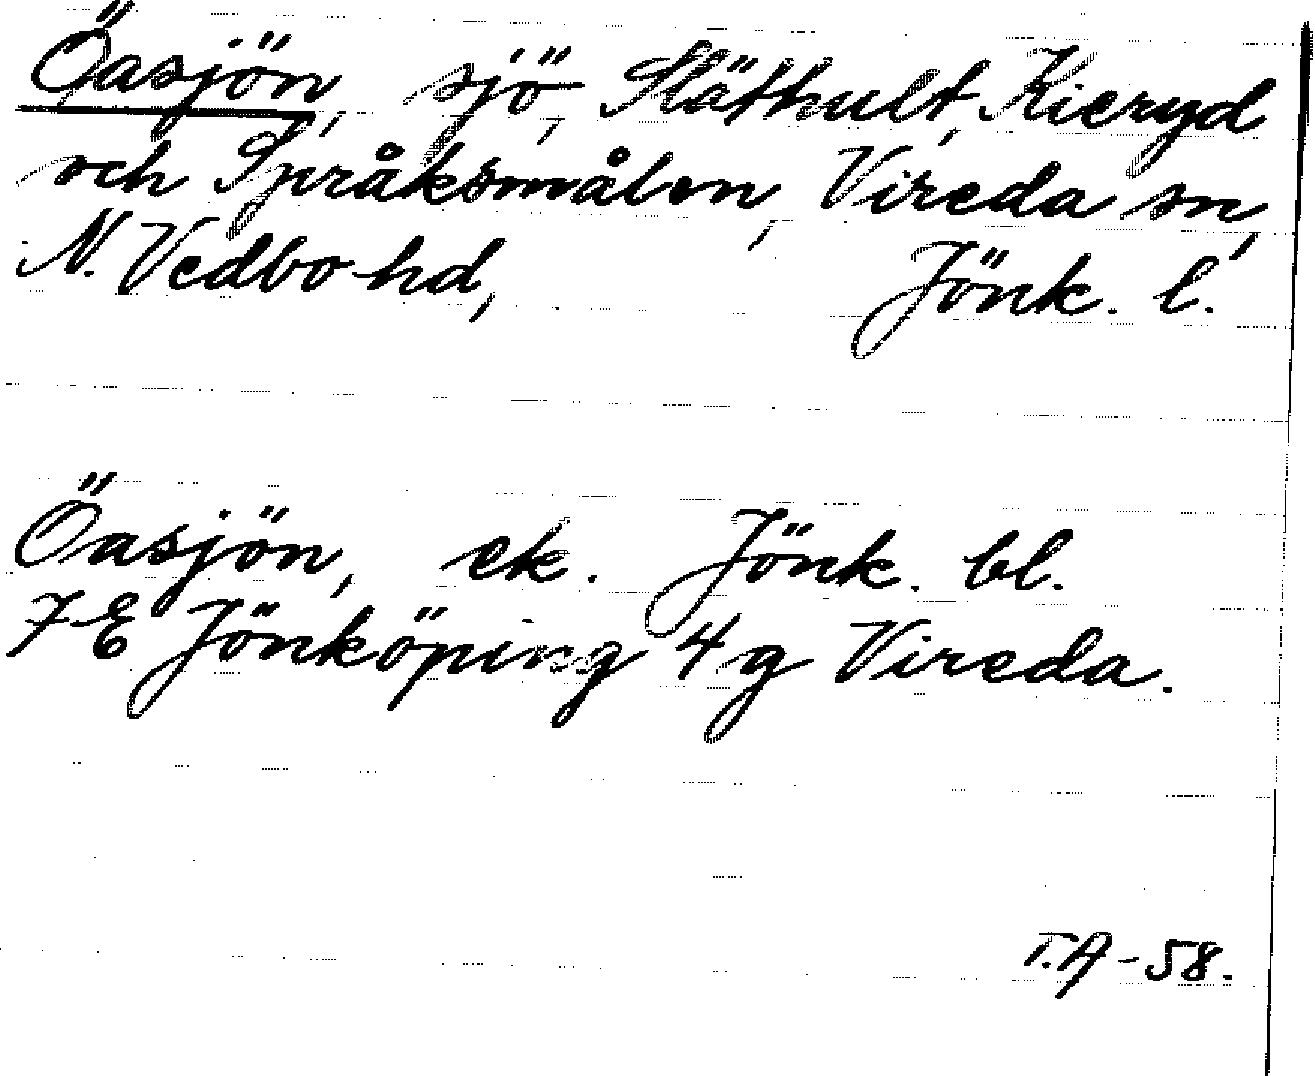 Öasjön, sjö, Släthult, Kieryd
och Språksmålen, Vireda sn,
N. Vedbo hd, Jönk. l.
Öasjön, ek. Jönk. bl.
7 E Jönköping 4 g Vireda.
T.A - 58.